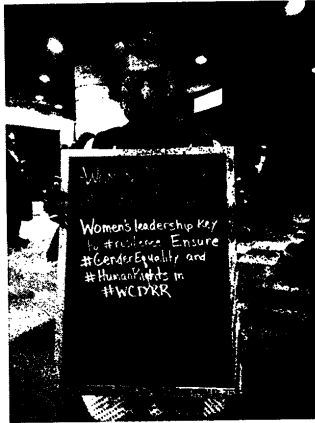 Women's leadership key
to #resilience Ensure
#GenderEquality and
#HumanRights in
#WCDRR